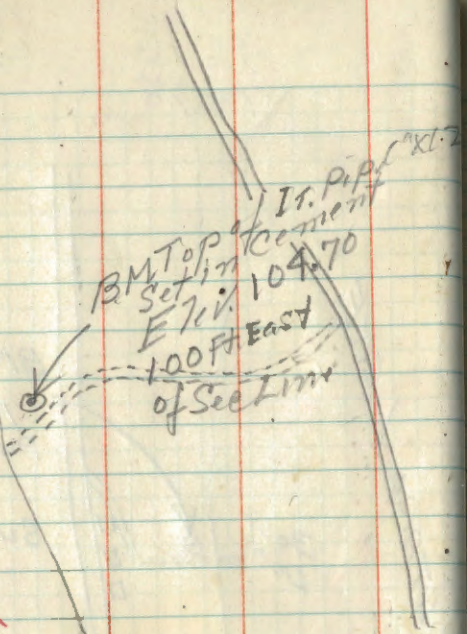 B.M. Top of Ir. Pipe
Set in Cement
Elev. 104.70
100 Ft. East
of Sec Line